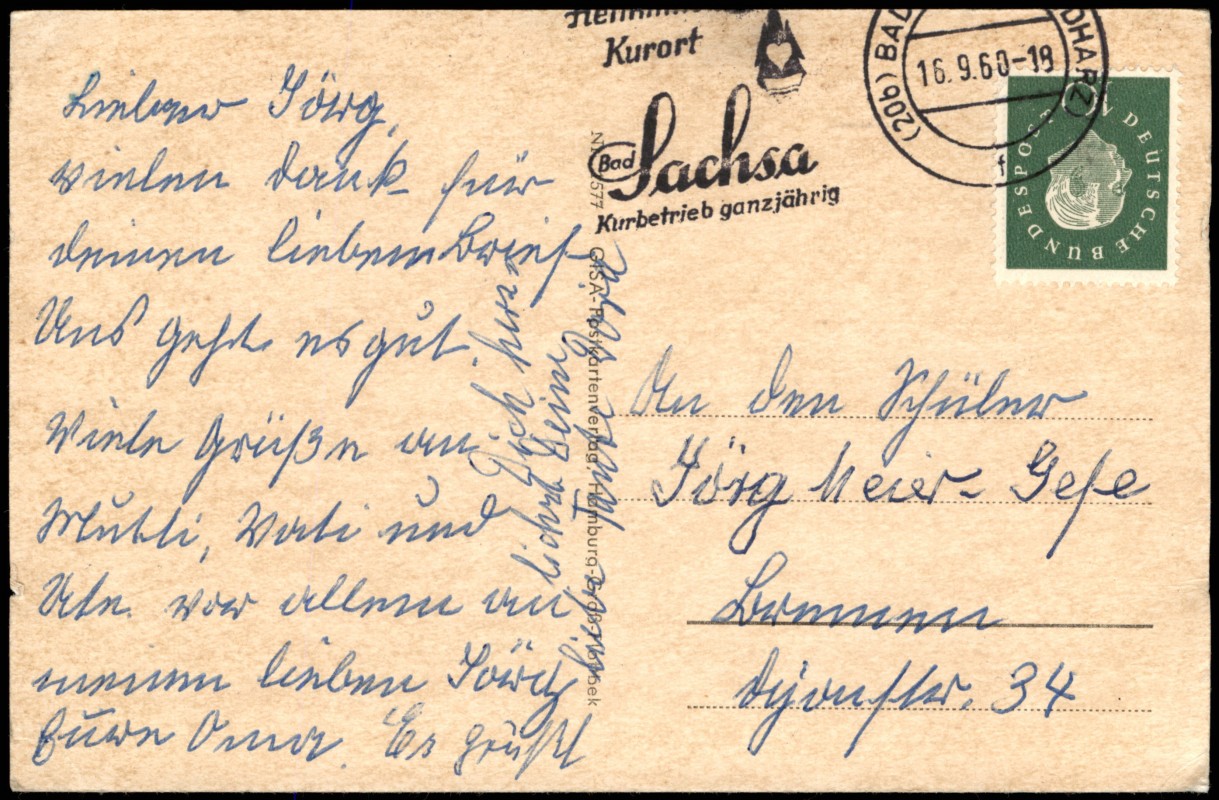 Lieber Jörg,
vielen Dank für
deinen lieben Brief.
Uns geht es gut.
Viele Grüße an
Mutti, Vati und
Ute vor allem an
meinen lieben Jörg
Eure Oma. Es grüßt
Dich herz
lichst Deine
Kurort
Bad Sachsa
Kurbetrieb ganzjährig
(20b) BAD
DHARZ)
16.9.60-18
f
DEUTSCHE BUNDESPOST
GISA-Postkartenverlag, Hamburg-Groß
An den Schüler
Jörg Meier-Gefe
Bremen
Dijonstr. 34